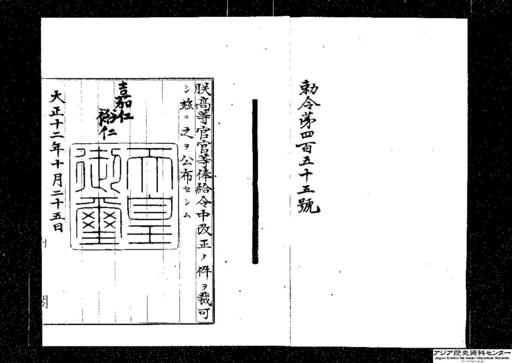 勅令第四百五十五號
朕高等官官等俸給令中改正ノ件ヲ裁可
シ茲ニ之ヲ公布セシム
嘉仁
裕仁
天皇
御璽
大正十二年十月二十五日
アジア歴史資料センター
Japan Center for Asian Historical Records